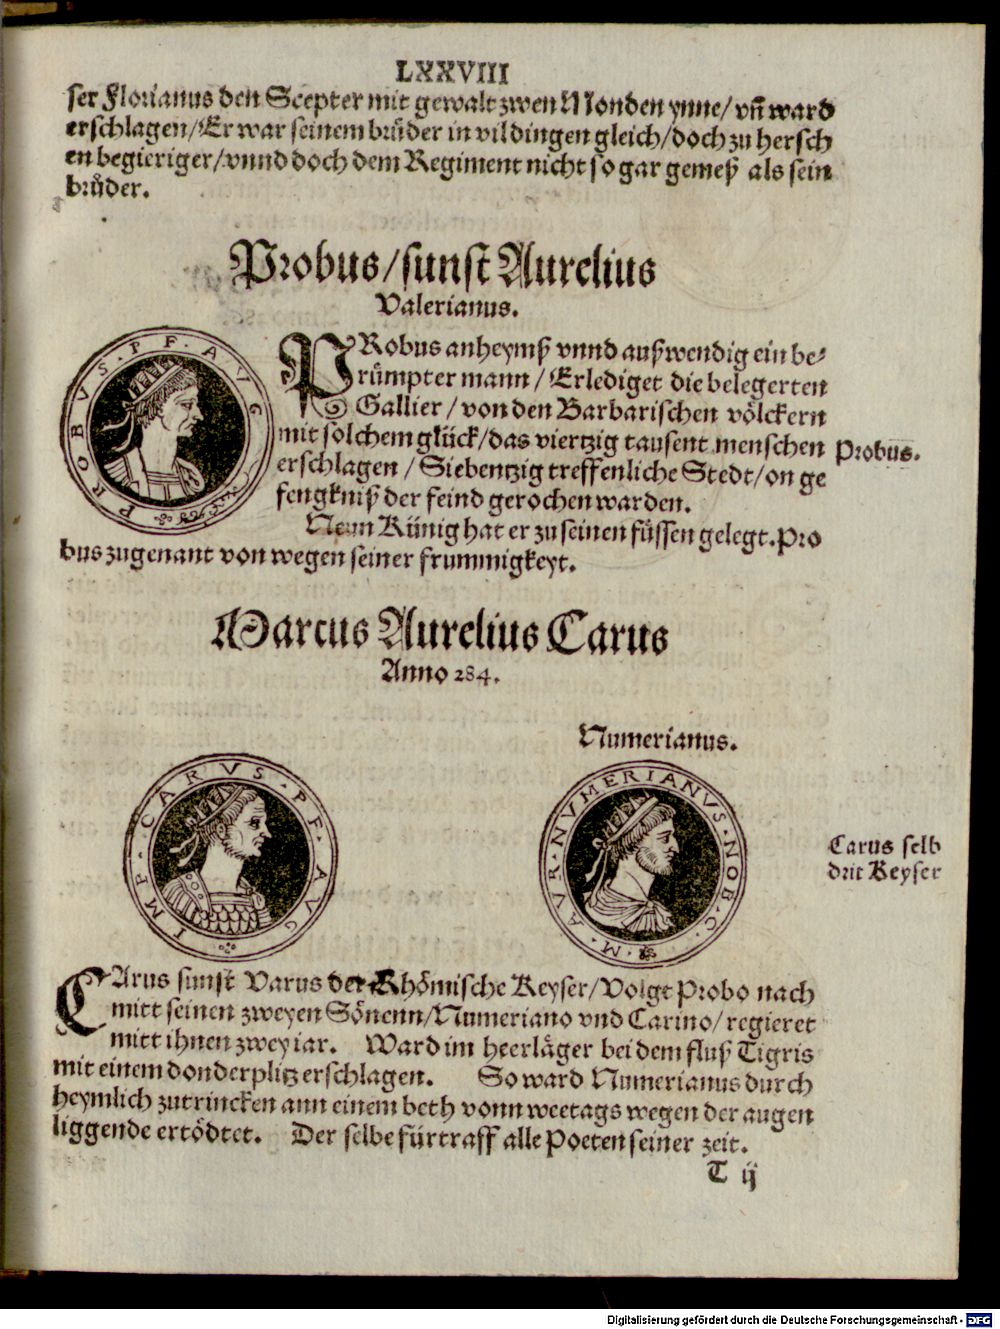 LXXVIII
ser Florianus den Scepter mit gewalt zwen Monden ynne/ vñ ward
erschlagen/ Er war seinem brůder in vil dingen gleich/ doch zu hersch
en begieriger/ vnnd doch dem Regiment nicht so gar gemeß als sein
brůder.
Probus/ sunst Aurelius
Valerianus.
PROBVS · P F · AVG
PRobus anheymß vnnd außwendig ein be⸗
rümpter mann/ Erlediget die belegerten
Gallier/ von den Barbarischen völckern
mit solchem glück/ das viertzig tausent menschen
erschlagen/ Siebentzig treffenliche Stedt/ on ge
fengkniß der feind gerochen warden.
Probus.
Neun Künig hat er zu seinen füssen gelegt. Pro
bus zugenant von wegen seiner frummigkeyt.
Marcus Aurelius Carus
Anno 284.
Numerianus.
IMP · CARVS · P F · AVG
M · AVR · NVMERIANVS · NOB · C ·
Carus selb
drit Keyser
CArus sunst Varus der Rhömische Keyser/ Volgt Probo nach
mitt seinen zweyen Sönenn/ Numeriano vnd Carino/ regieret
mitt ihnen zwey iar. Ward im heerläger bei dem fluß Tigris
mit einem donderplitz erschlagen. So ward Numerianus durch
heymlich zutrincken ann einem beth vonn weetags wegen der augen
liggende ertödtet. Der selbe fürtraff alle Poeten seiner zeit.
T ij
Digitalisierung gefördert durch die Deutsche Forschungsgemeinschaft - DFG